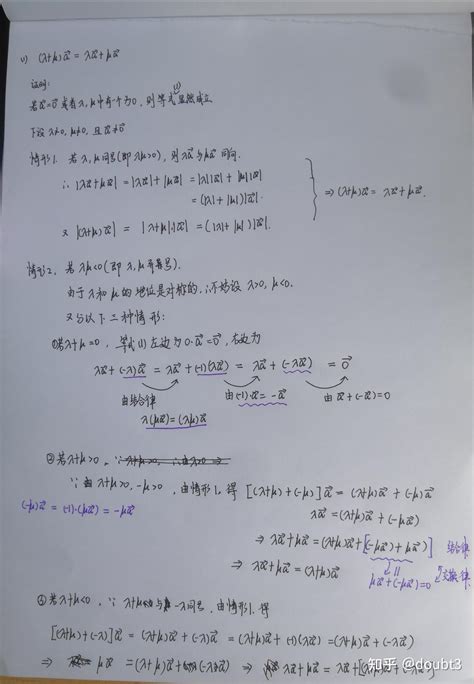 1) (λ+μ)a⃗ = λa⃗+μa⃗
证明:
若a⃗=0⃗ 或者λ,μ中有一个为0, 则等式(1)显然成立
下设 λ≠0, μ≠0, 且 a⃗≠0⃗
情形1. 若λ,μ同号(即λμ>0), 则λa⃗与μa⃗同向.
∴ |λa⃗+μa⃗| = |λa⃗|+|μa⃗| = |λ||a⃗|+|μ||a⃗|
= (|λ|+|μ|)|a⃗|.
⇒ (λ+μ)a⃗ = λa⃗+μa⃗.
又 |(λ+μ)a⃗| = |λ+μ||a⃗| = (|λ|+|μ|)|a⃗|.
情形2. 若λμ<0(即λ,μ异号).
由于λ和μ的地位是对称的, ∴不妨设 λ>0, μ<0.
又分以下三种情形:
①若λ+μ=0, 等式(1)左边为0·a⃗=0⃗, 右边为
λa⃗+(-λ)a⃗ = λa⃗+(-1)(λa⃗) = λa⃗+(-λa⃗) = 0⃗
由结合律
λ(μa⃗)=(λμ)a⃗
由(-1)·a⃗=-a⃗
由a⃗+(-a⃗)=0
②若λ+μ>0,
∵由λ+μ>0, -μ>0, 由情形1, 得 [(λ+μ)+(-μ)]a⃗ = (λ+μ)a⃗+(-μ)a⃗
(-μ)a⃗ = (-1)·(μa⃗) = -μa⃗
λa⃗ = (λ+μ)a⃗+(-μa⃗)
⇒ λa⃗+μa⃗ = (λ+μ)a⃗+[(-μa⃗)+μa⃗] 结合律
μa⃗+(-μa⃗)=0 交换律
⇒ λa⃗+μa⃗ = (λ+μ)a⃗
③若λ+μ<0, ∵ λ+μ与-λ同号, 由情形1, 得
[(λ+μ)+(-λ)]a⃗ = (λ+μ)a⃗+(-λ)a⃗ = (λ+μ)a⃗+(-1)(λa⃗) = (λ+μ)a⃗+(-λa⃗)
⇒ μa⃗ = (λ+μ)a⃗+(-λa⃗) ⇒ μa⃗+λa⃗ =
知乎 @doubt3